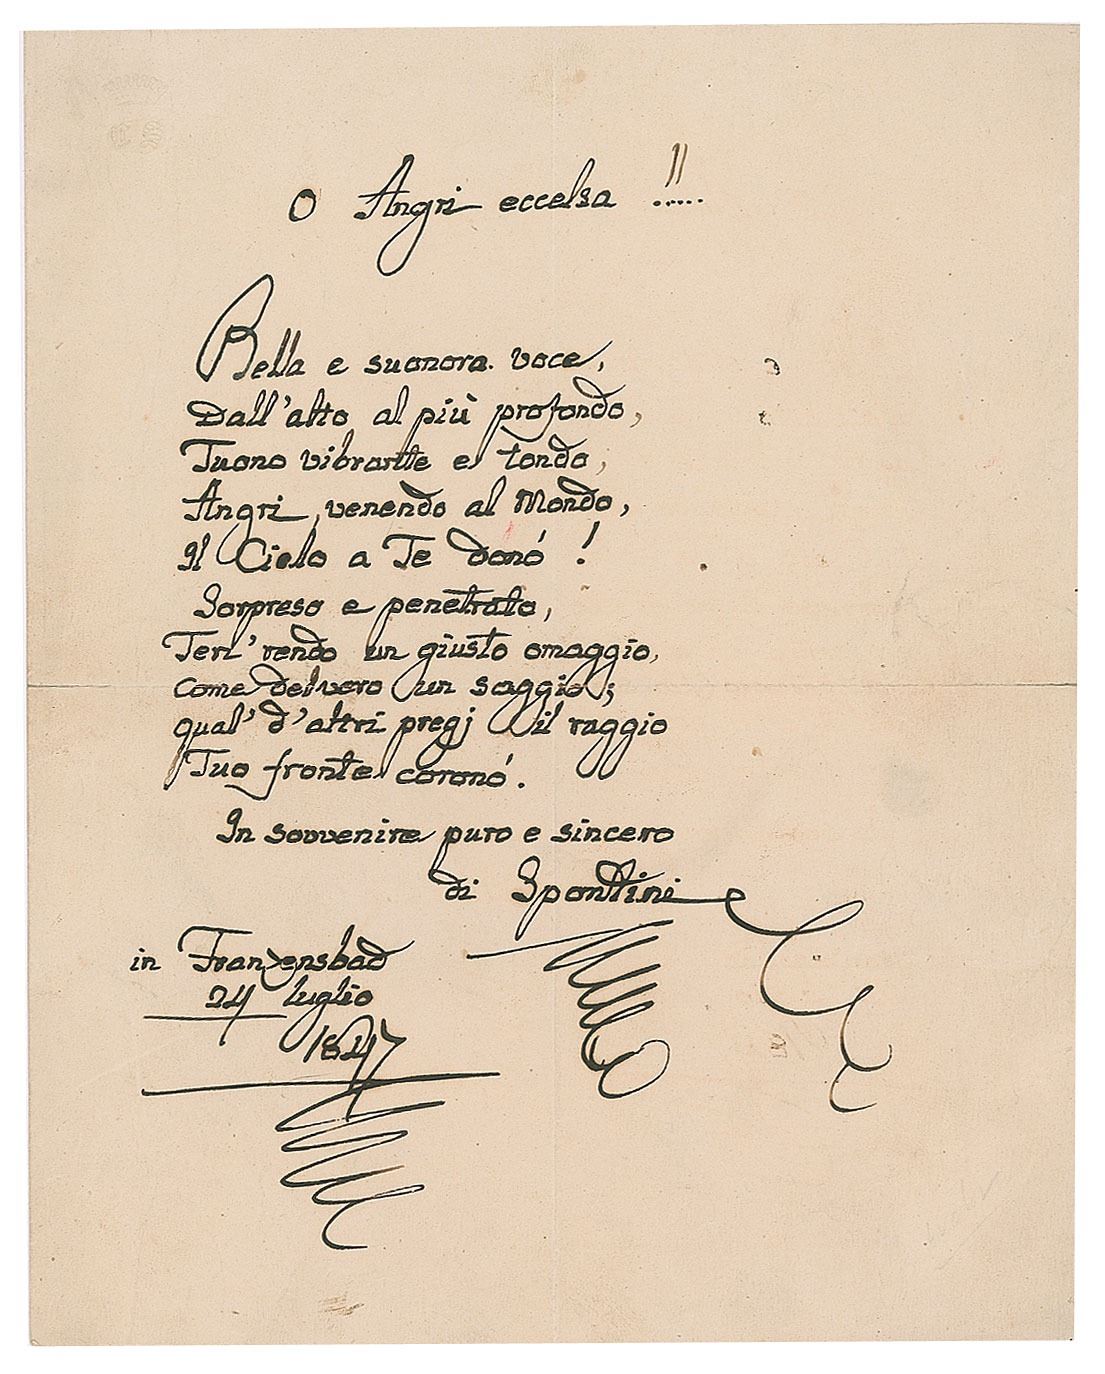 O Angri eccelsa !!.....
Bella e suonora voce,
Dall'alto al più profondo,
Tuono vibrante e tondo,
Angri, venendo al Mondo,
Il Cielo a Te donó!
Sorpreso e penetrato,
Ten' rendo un giusto omaggio,
come del vero un saggio;
qual' d'altri pregj il raggio
Tuo fronte coronó.
In sovvenire puro e sincero
di Sponttini
in Franzensbad
24 luglio
1847